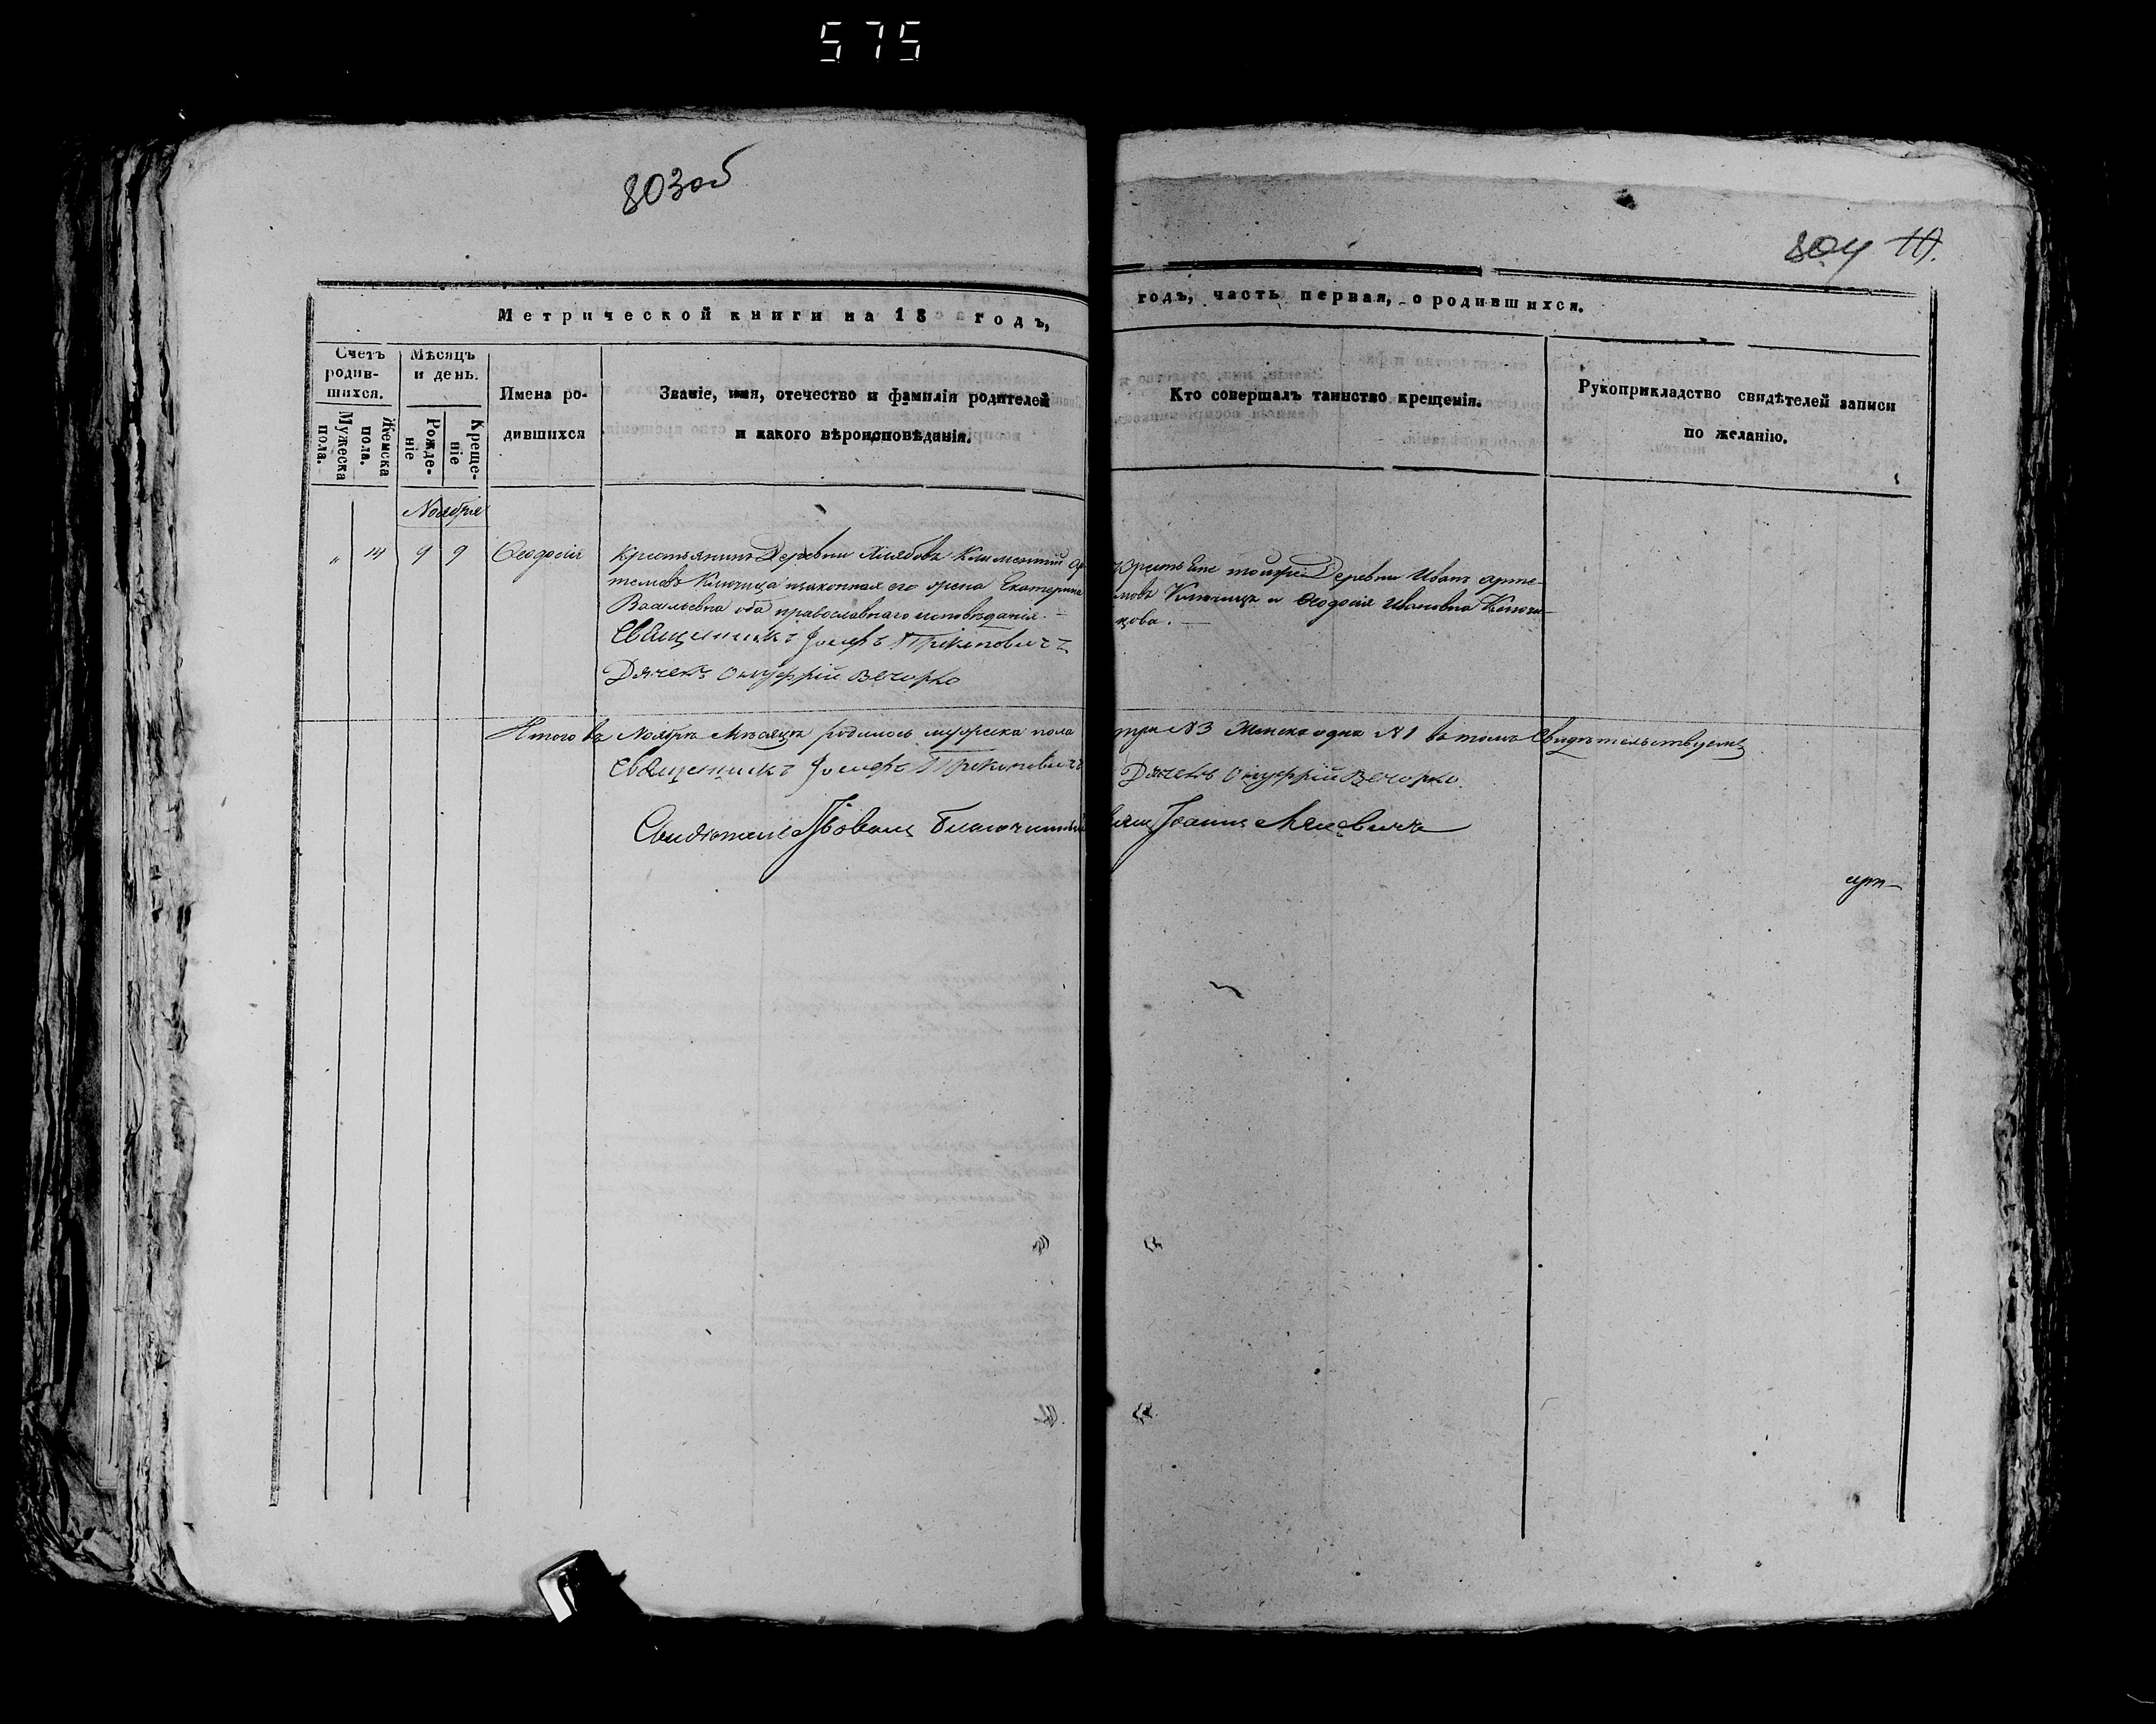 575
803об
804 19.
Метрической книги на 18 годъ,
годъ, часть первая, о родившихся.
Счетъ родив-шихся.
Мужеска пола.
Женска пола.
Мѣсяцъ и день.
Рожде-ніе
Креще-ніе
Имена ро-дившихся
Званіе, имя, отечество и фамилія родителей
и какого вѣроисповѣданія.
Кто совершалъ таинство крещенія.
Рукоприкладство свидѣтелей записи
по желанію.
Ноября
" 14 9 9 Ѳеодосія
Крестьянинъ Деревни Климентій Ар-
темовъ Ключица изаконная его жена Екатерина
Васильевна оба православнаго исповѣданія. —
Священникъ Іосифъ
Дячекъ Онуфрій Вечорко
Крестьяне тойже Деревни Иванъ Арте-
мовъ Ключица и Ѳеодосія Ивановна Ключи-
цова. —
Итого въ Ноябрѣ Мѣсяцѣ родилось мужеска пола
три №3 Женска одна №1 въ томъ Свидѣтельствуемъ
Священникъ Іосифъ
Дячекъ Онуфрій Вечорко.
Іоаннъ